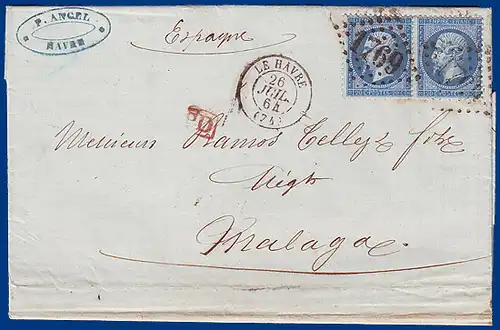 P. ANGEL
HAVRE
Espagne
EMPIRE FRANC
1769
LE HAVRE
26
JUIL.
64
(74)
PD
Messieurs Ramos Tellez
Malaga